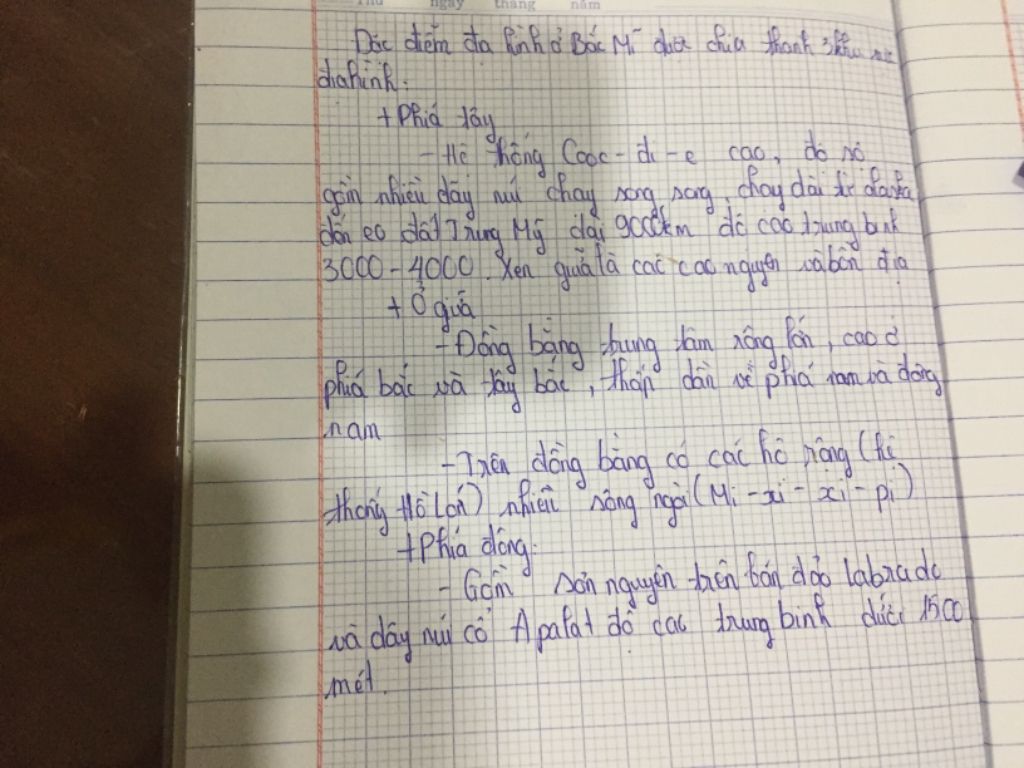 Thứ ngày tháng năm
Đặc điểm địa hình ở Bắc Mĩ được chia thành 3 khu vực
địa hình.
+ Phía tây
- Hệ thống Cooc-đi-e cao, đồ sộ
gồm nhiều dãy núi chạy song song, chạy dài từ
đến eo đất Trung Mỹ dài 9000km độ cao trung bình
3000-4000. Xen giữa là các cao nguyên và bồn địa
+ Ở giữa
- Đồng bằng trung tâm rộng lớn, cao ở
phía bắc và tây bắc, thấp dần về phía nam và đông
nam
- Trên đồng bằng có các hồ rộng (hệ
thống Hồ Lớn) nhiều sông ngòi (Mi-xi-xi-pi)
+ Phía đông.
- Gồm sơn nguyên trên bán đảo labrado
và dãy núi cổ Apalat độ cao trung bình dưới 1500
mét.